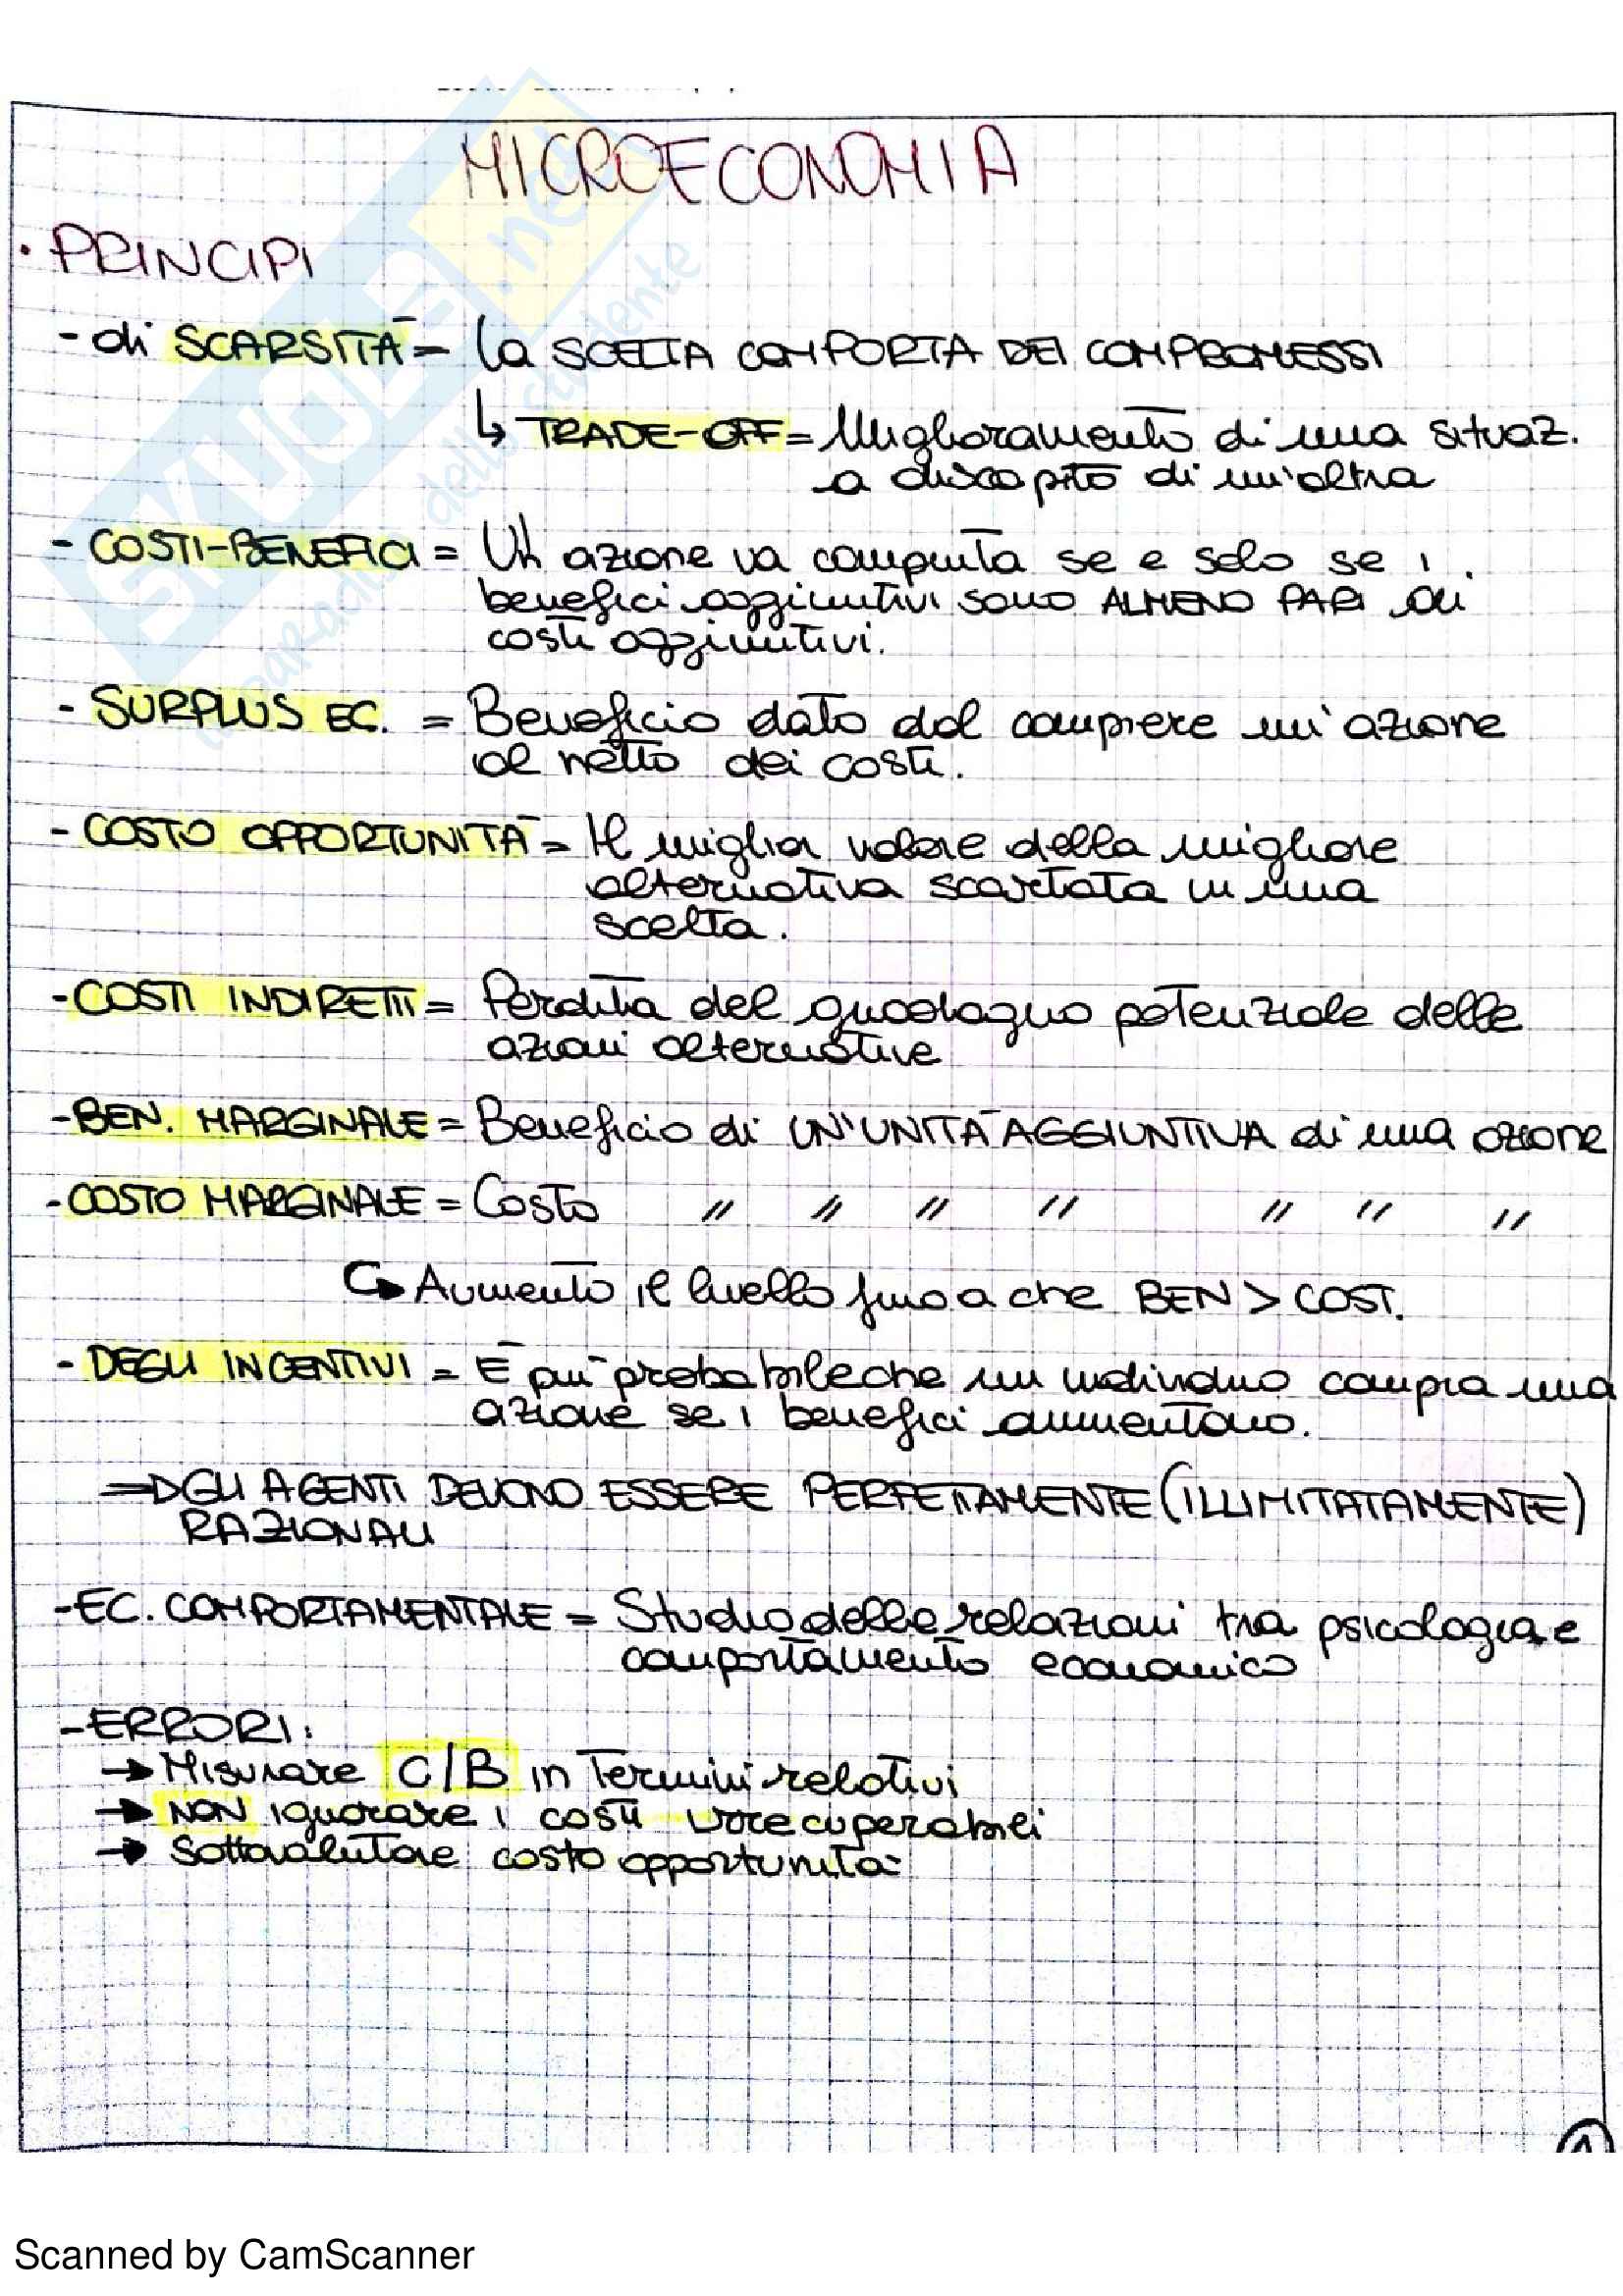 MICROECONOMIA
· PRINCIPI
- di SCARSITÀ = La SCELTA COMPORTA DEI COMPROMESSI
↳ TRADE-OFF = Miglioramento di una situaz.
a discapito di un'altra
- COSTI-BENEFICI = Un azione va compiuta se e solo se i
benefici aggiuntivi sono ALMENO PARI ai
costi aggiuntivi.
- SURPLUS EC. = Beneficio dato dal compiere un'azione
al netto dei costi.
- COSTO OPPORTUNITÀ = Il miglior valore della migliore
alternativa scartata in una
scelta.
- COSTI INDIRETTI = Perdita del guadagno potenziale delle
azioni alternative
- BEN. MARGINALE = Beneficio di UN'UNITÀ AGGIUNTIVA di una azione
- COSTO MARGINALE = Costo " " " " " " "
↳ Aumento il livello fino a che BEN > COST.
- DEGLI INCENTIVI = È più probabile che un individuo compia una
azione se i benefici aumentano.
⇒ GLI AGENTI DEVONO ESSERE PERFETTAMENTE (ILLIMITATAMENTE)
RAZIONALI
- EC. COMPORTAMENTALE = Studio delle relazioni tra psicologia e
comportamento economico
- ERRORI:
→ Misurare C/B in Termini relativi
→ NON ignorare i costi irrecuperabili
→ Sottovalutare costo opportunità
SKUOLA.net
il paradiso dello studente
1
Scanned by CamScanner